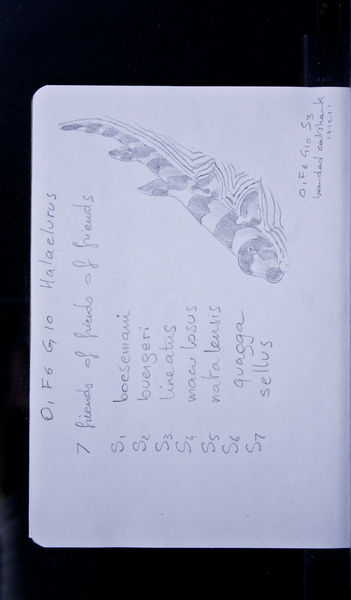 O1 F6 G10 Halaelurus
7 friends of friends of friends
S1 boesemani
S2 buergeri
S3 lineatus
S4 maculosus
S5 natalensis
S6 quagga
S7 sellus
O1 F6 G10 S3
banded catshark